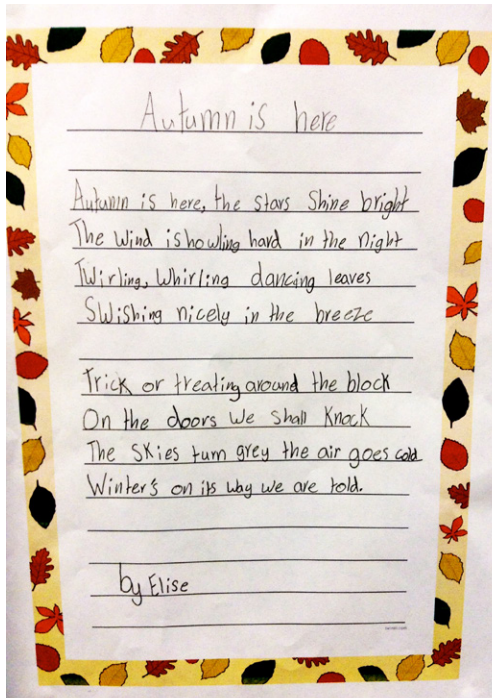 Autumn is here
Autumn is here, the stars shine bright
The wind is howling hard in the night
Twirling, Whirling dancing leaves
Swishing nicely in the breeze
Trick or treating around the block
On the doors we shall knock
The skies turn grey the air goes cold
Winter's on its way we are told.
by Elise